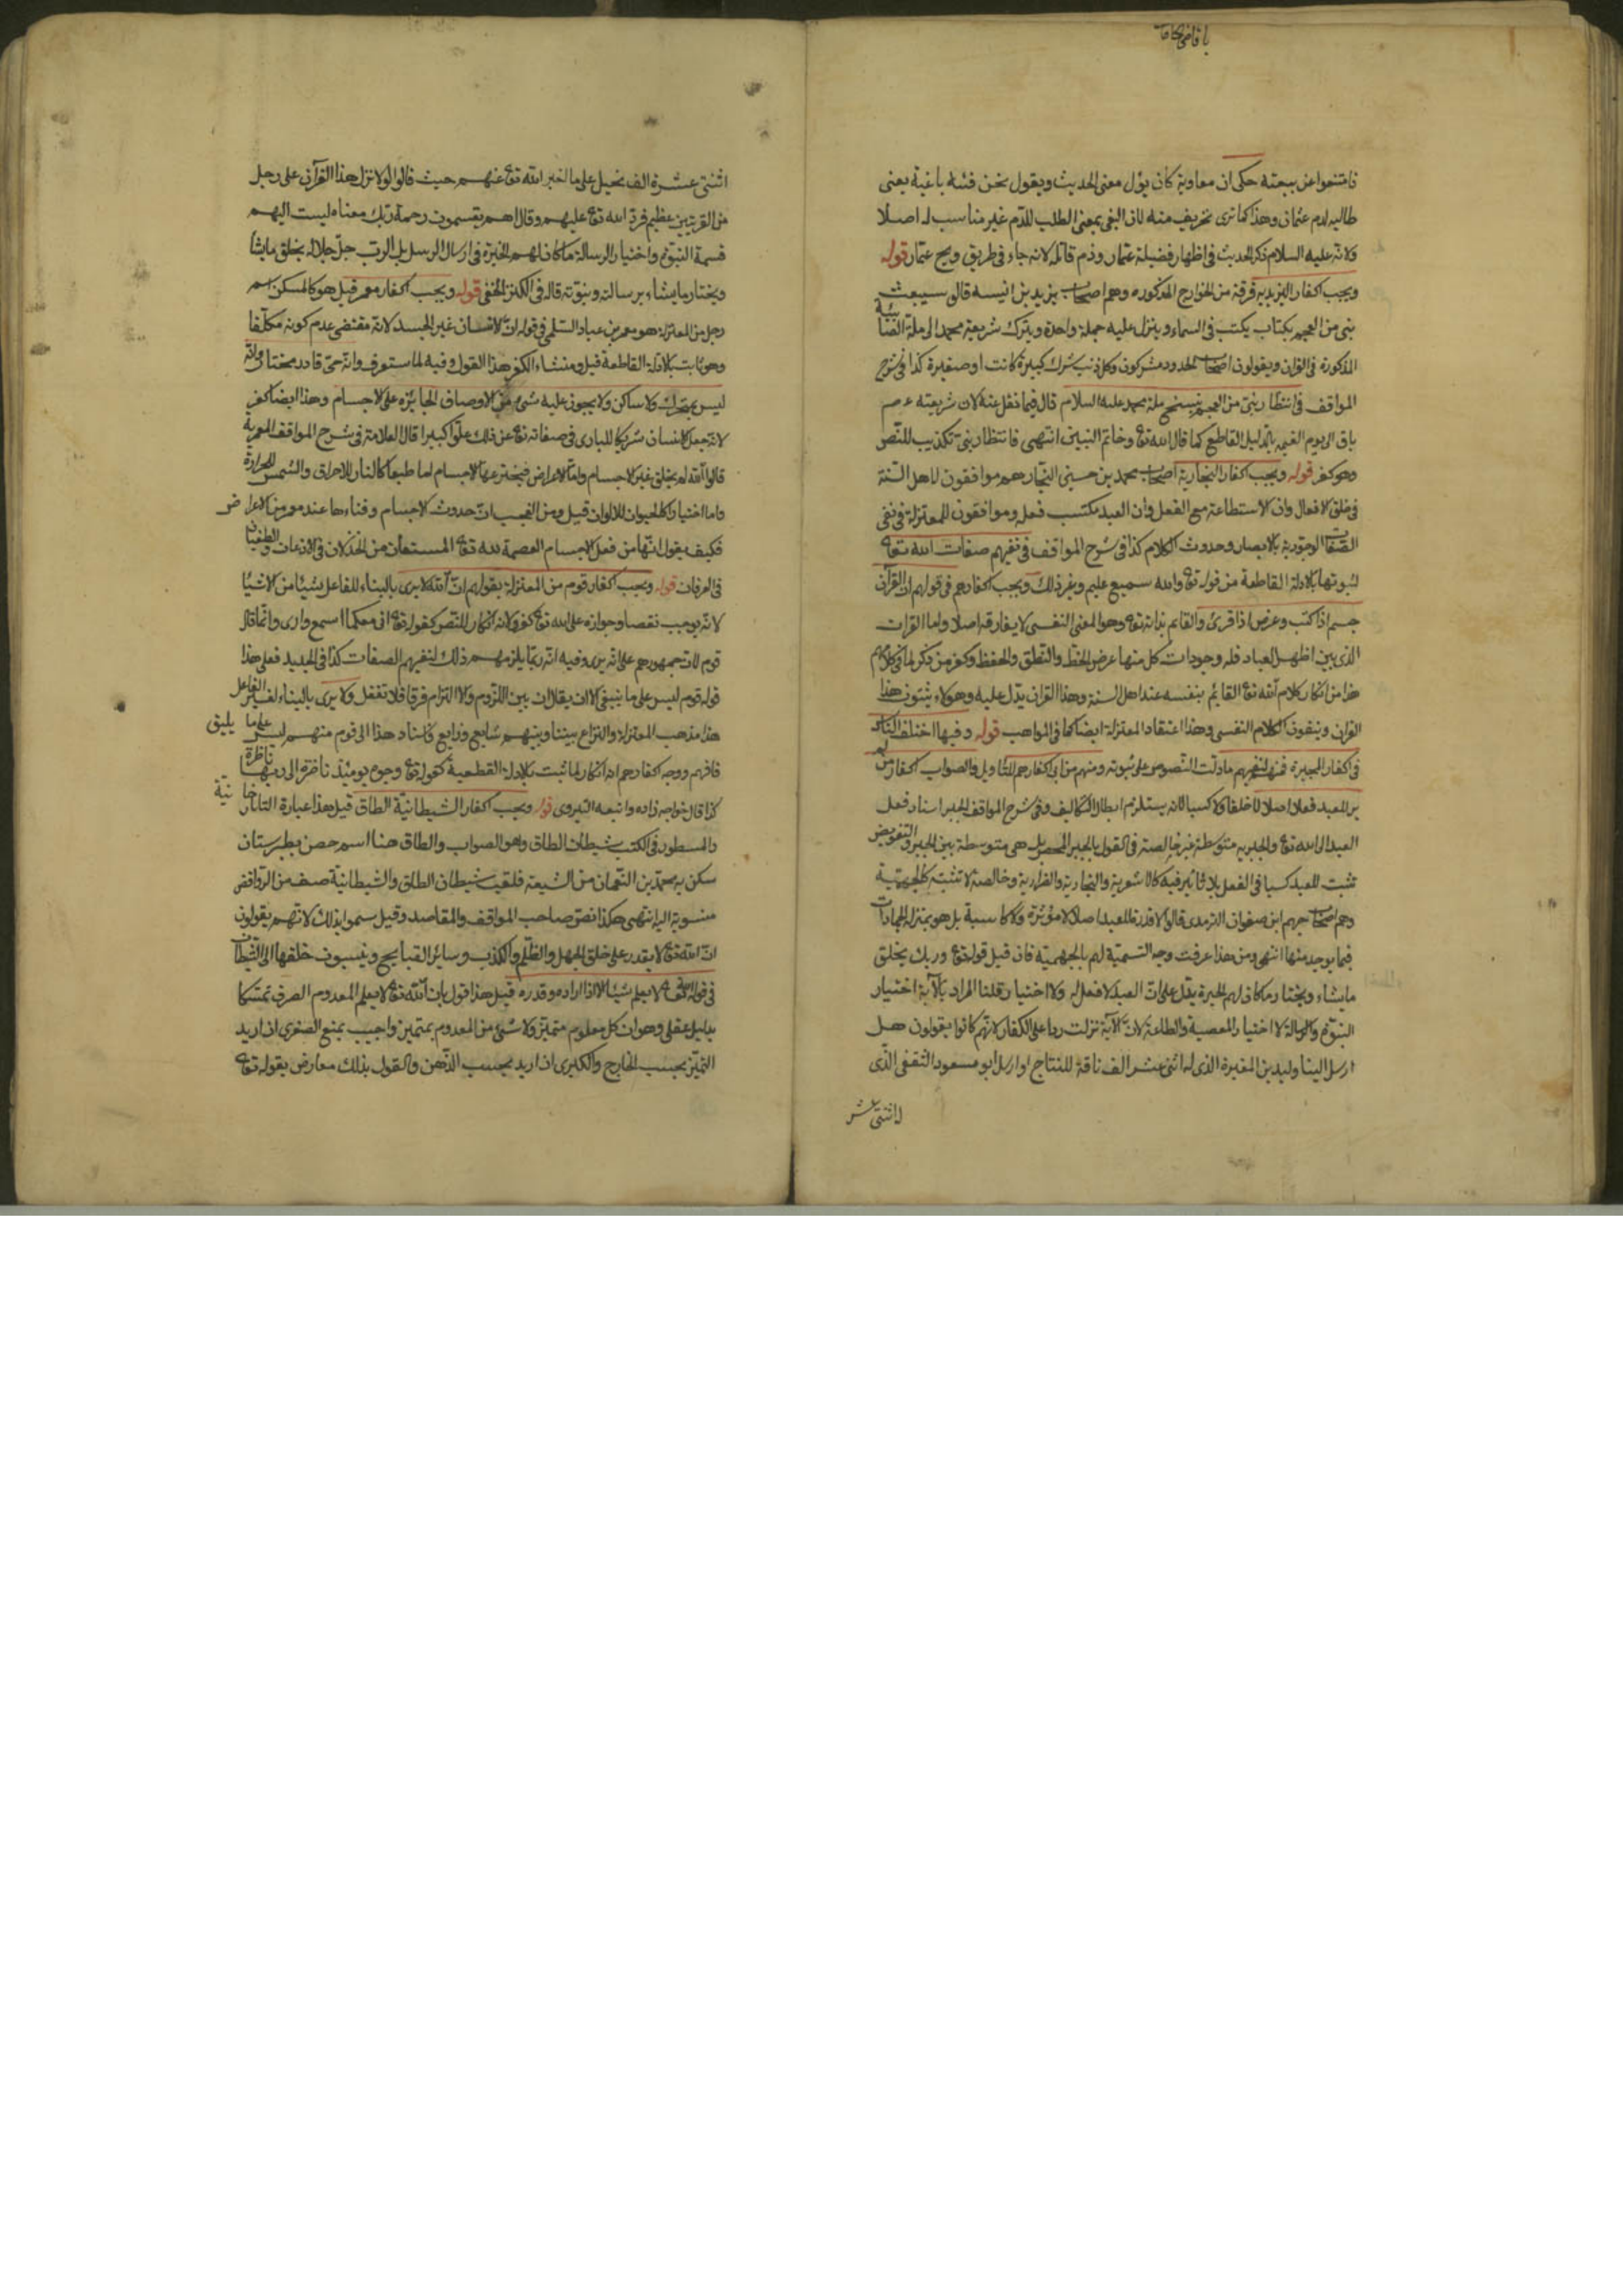 فامتنعوا عن بيعته حكى ان معاوية كان يؤل معنى الحديث ويقول نحن فئة باغية يعنى
طالبه لدم عثمان وهذا كما ترى تحريف منه لان البغى بمعنى الطلب للدم غير مناسب له اصلا
ولانه عليه السلام ذكر الحديث فى اظهار فضيلة عمار وذم قاتله لانه جاء فى طريق ويح عمار قوله
ويجب اكفار اليزيديه فرقة من الخوارج المذكوره وهم اصحاب يزيد بن انيسه قالوا سيبعث
نبى من العجم بكتاب يكتب فى السماء وينزل عليه جملة واحدة ويترك شريعة محمد الى ملة الصابئية
المذكورة فى القران ويقولون اصحاب الحدود مشركون وكل ذنب شرك كبيرة كانت او صغيرة كذا فى شرح
المواقف فى انتظار نبى من العجم ينسخ ملة محمد عليه السلام قال فيما نقل عنه لان شريعته عم
باق الى يوم القيمه بالدليل القاطع كما قال الله تع وخاتم النبيين انتهى فانتظار نبى تكذيب للنص
وهو كفر قوله ويجب اكفار النجارية اصحاب محمد بن حسين النجار هم موافقون لاهل السنة
فى خلق الافعال وان الاستطاعة مع الفعل وان العبد مكتسب فعله وموافقون للمعتزلة فى نفى
الصفات الوجودية بالابصار وحدوث الكلام كذا فى شرح المواقف فى نفيهم صفات الله تعا
لثبوتها بالادلة القاطعة من قوله تع والله سميع عليم وغير ذلك ويجب اكفارهم فى قولهم ان القرآن
جسم اذا كتب وعرض اذا قرئ والقائم بذاته تع وهو المعنى النفسى لا يفارقه اصلا واما القران
الذى بين اظهر العباد فله وجودات كل منها عرض الخط والنطق والحفظ وكفر من ذكر لما فى كلام
هذا من انكار كلام الله تع القائم بنفسه عند اهل السنة وهذا القران يدل عليه وهؤلاء يثبتون هذا
القران وينفون الكلام النفسى وهذا اعتقاد المعتزلة ايضا كما فى المواهب قوله وفيها اختلف الناس
فى اكفار المجبرة فمنهم لنفيهم ما دلت النصوص على ثبوته ومنهم من ابى اكفارهم للتاويل والصواب اكفار من لم
ير للعبد فعلا اصلا لا خلقا ولا كسبا لانه يستلزم ابطال التكاليف وفى شرح المواقف الجبر اسناد فعل
العبد الى الله تع والجبريه متوسطة غير خالصة فى القول بالجبر المحض بل هى متوسطة بين الجبر والتفويض
تثبت للعبد كسبا فى الفعل بلا تاثير فيه كالاشعرية والنجارية والضرارية وخالصة لا تثبته كالجهمية
وهم اصحاب جهم ابن صفوان الترمدى قالوا لا قدرة للعبد اصلا لا مؤثرة ولا كاسبة بل هو بمنزلة الجمادات
فيما يوجد منها انتهى ومن هذا عرفت وجه التسمية لهم بالجهمية فان قيل قوله تع وربك يخلق
ما يشاء ويختار ما كان لهم الخيرة يدل على ان العبد لا فعل له ولا اختيار قلنا المراد بالآية اختيار
النبوة والرسالة لا اختيار المعصية والطاعة لان الآية نزلت ردا على الكفار لانهم كانوا يقولون هل
ارسل الينا وليد بن المغيرة الذى له اثنى عشر الف ناقة للنتاج او ارسل ابو مسعود الثقفى الذى
له اثنتى عشر
اثنتى عشرة الف نخيل على ما اخبر الله تع عنهم حيث قالوا لولا نزل هذا القرآن على رجل
من القريتين عظيم فرد الله تع عليهم وقال اهم يقسمون رحمة ربك معناه ليست اليهم
قسمة النبوة واختيار الرسالة ما كان لهم الخيرة فى ارسال الرسل بل الرب جل جلاله يخلق ما يشا
ويختار ما يشاء برسالته ونبوته قاله فى الكنز الخفى قوله ويجب اكفار معمر قيل هو كالمسكن اسم
رجل من المعتزلة هو معمر بن عباد السلمى فى قوله ان الانسان غير الجسد لانه مقتضى عدم كونه مكلفا
وهو ثابت بالادلة القاطعة قيل ومنشاء الكفر هذا القول وفيه لما ستعرف وانه حى قادر مختار وانه
ليس بمتحرك ولا ساكن ولا يجوز عليه شئ من الاوصاف الجائزه على الاجسام وهذا ايضا كفر
لانه جعل الانسان شريكا للبارى فى صفاته تع عن ذلك علوا كبيرا قال العلامة فى شرح المواقف المعمرية
قالوا الله لم يخلق غير الاجسام واما الاعراض فيخترعها الاجسام اما طبعا كالنار للاحراق والشمس للحرارة
واما اختيارا كالحيوان للالوان قيل ومن العجب ان حدوث الاجسام وفناءها عند معمر من الاعراض
فكيف يقول انها من فعل الاجسام العصمة لله تع المستعان من الخذلان فى الاذعان والطغيان
فى العرفان قوله ويجب اكفار قوم من المعتزلة بقولهم ان الله لا يرى بالبناء للفاعل شيئا من الاشيا
لانه يوجب نقصا وجوازه على الله تع كفر ولانه انكار للنص كقوله تع اننى معكما اسمع وارى وانما قال
قوم لان جمهورهم على انه يرى وفيه انه ربما يلزمهم ذلك لنفيهم الصفات كذا فى الجديد فعلى هذا
قوله قوم ليس على ما ينبغى الا ان يقال ان بين اللزوم والالتزام فرقا فلا تغفل ولا يرى بالبناء لغير الفاعل
هذا مذهب المعتزلة والنزاع بيننا وبينهم شايع وذايع فاسناد هذا الى قوم منهم ليس على ما يليق
فافهم ووجه اكفارهم انه انكار لما ثبت بالادلة القطعية كقوله تع وجوه يومئذ ناضرة الى ربها ناظرة
كذا قال خواجه زاده واتبعه التيروى قوله ويجب اكفار الشيطانية الطاق قيل هذا عبارة التاتار خانية
والمسطور فى الكتب شيطان الطاق وهو الصواب والطاق هنا اسم حصن بطبرستان
سكن به محمد بن النعمان من الشيعة فلقب شيطان الطاق والشيطانية صنف من الروافض
منسوبة اليه انتهى هكذا نص صاحب المواقف والمقاصد وقيل سموا بذلك لانهم يقولون
ان الله تع لا يقدر على خلق الجهل والظلم والكذب وساير القبايح وينسبون خلقها الى الشيطان
فى قوله ان الله تع لا يعلم شيئا الا اذا اراده وقدره قيل هذا قول بان الله تع لا يعلم المعدوم الصرف تمسكا
بدليل عقلى وهو ان كل معلوم متميز ولا شئ من المعدوم بمتميز واجيب بمنع الصغرى ان اريد
التميز بحسب الخارج والكبرى ان اريد بحسب الذهن والقول بذلك معارض بقوله تع